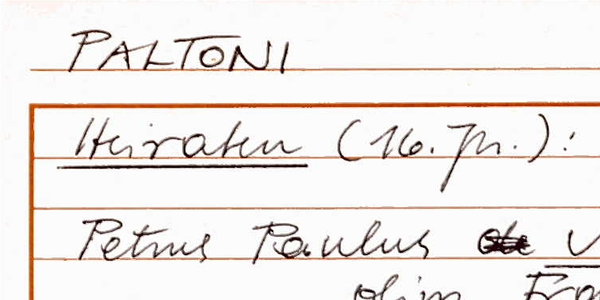 PALTONI
Heiraten (16. Jh.):
Petrus Paulus
olim Fra